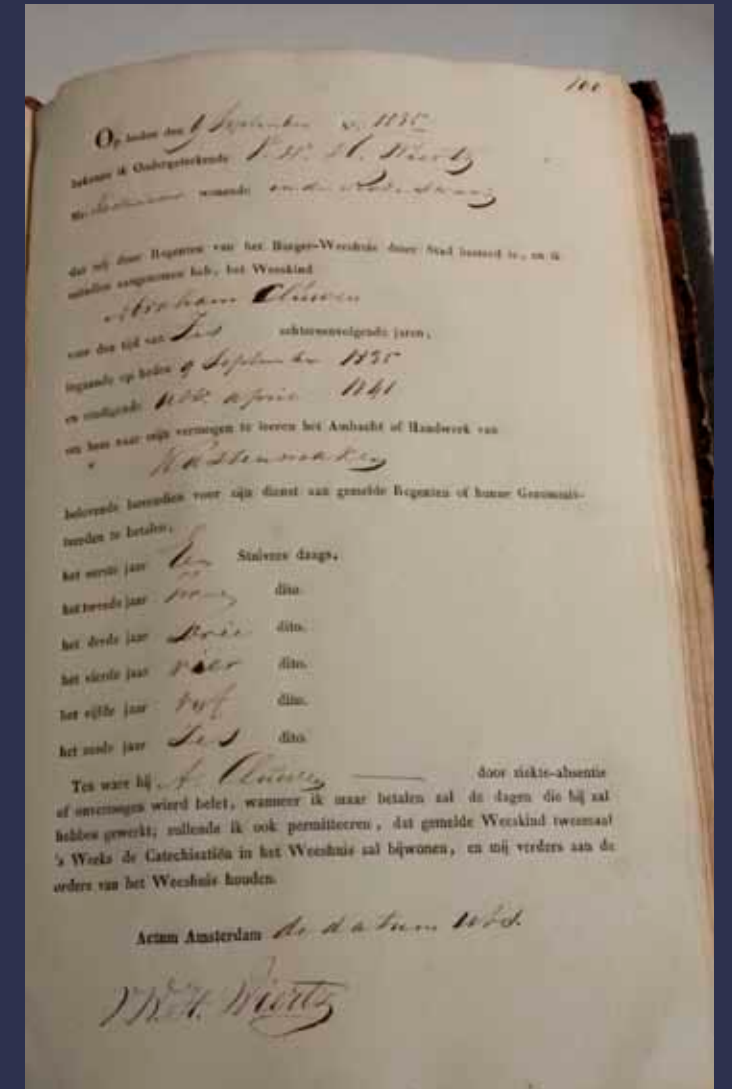 100
Op heden den 9 September 1835
bekenne ik Ondergeteekende V. W. H. Wiertz
Mr. wonende in de
dat mij door Regenten van het Burger-Weeshuis dezer Stad besteed is, en ik
van dezelven aangenomen heb, het Weeskind
Abraham Cluwen
voor den tijd van Zes achtereenvolgende jaren,
ingaande op heden 9 September 1835
en eindigende April 1841
om hem naar mijn vermogen te leeren het Ambacht of Handwerk van
Kastenmaken
belovende bovendien voor zijn dienst aan gemelde Regenten of hunne Gecommit-
teerden te betalen,
het eerste jaar Een Stuivers daags.
het tweede jaar twee dito.
het derde jaar drie dito.
het vierde jaar vier dito.
het vijfde jaar vyf dito.
het zesde jaar Zes dito.
Ten ware hij A. Cluwen door ziekte-absentie
of onvermogen wierd belet, wanneer ik maar betalen zal de dagen die hij zal
hebben gewerkt; zullende ik ook permitteeren, dat gemelde Weeskind tweemaal
's Weeks de Catechisatiën in het Weeshuis zal bijwonen, en mij verders aan de
orders van het Weeshuis houden.
Actum Amsterdam de datum
V. W. H. Wiertz